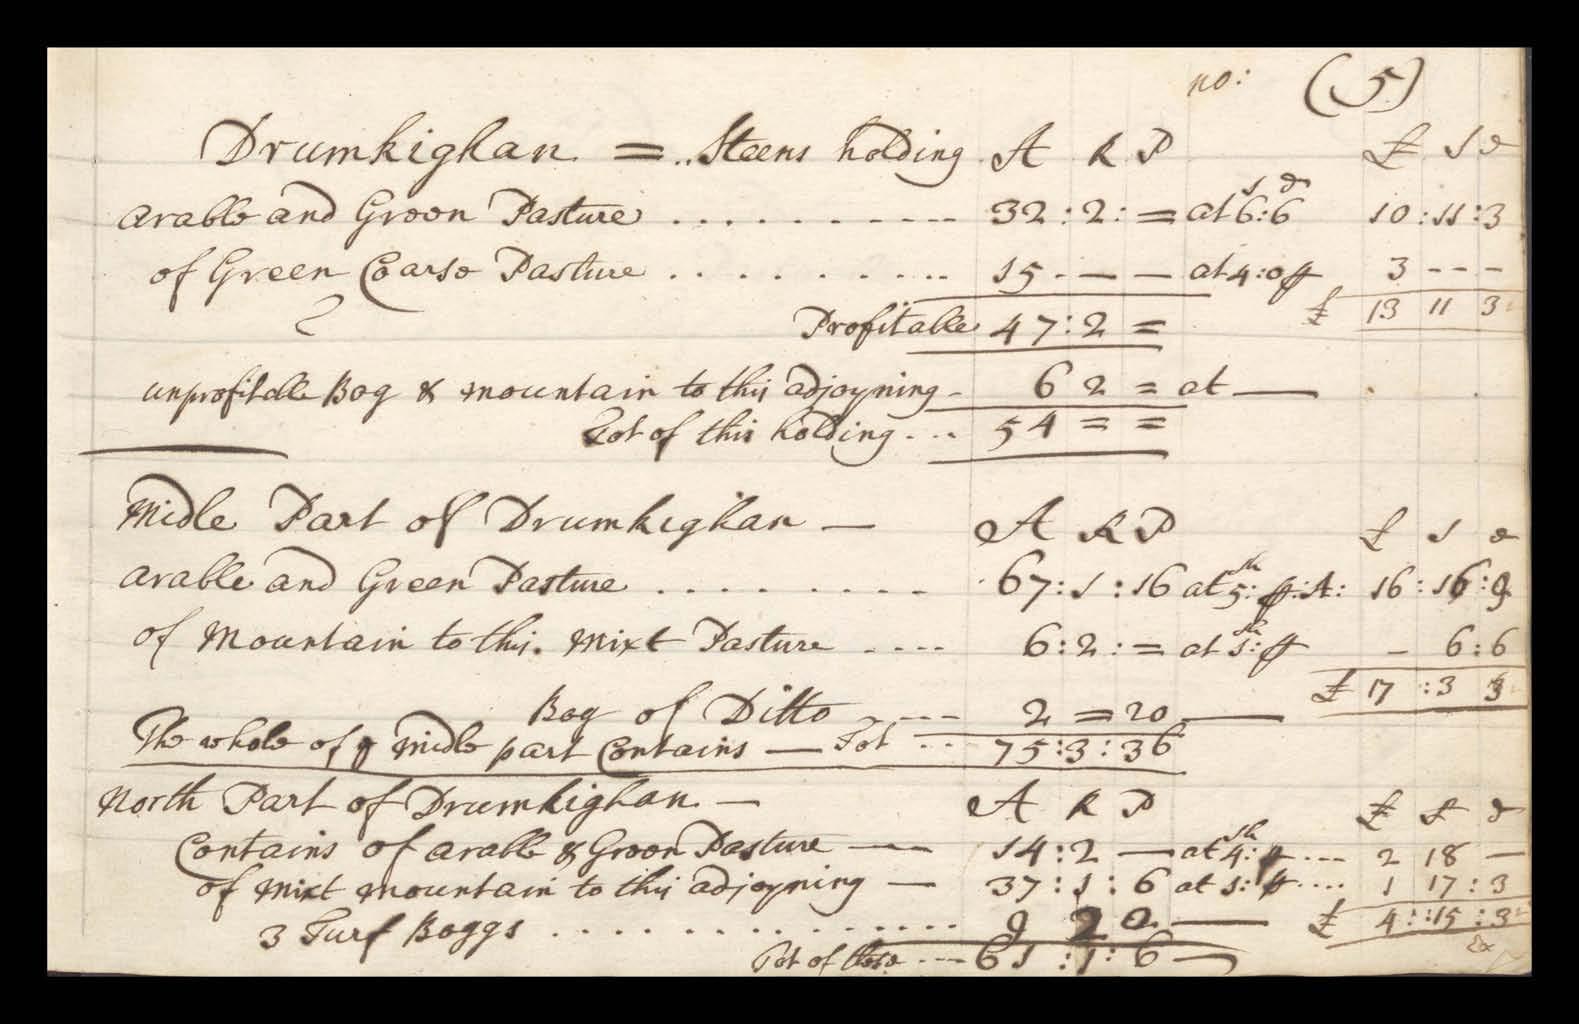 no: (5)
Drumkighan = .. Steens holding A R P £ s d
s d
arable and Green Pasture . . . . . . . . --- 32 : 2 : = at 6 : 6 10 : 11 : 3
of Green Coarse Pasture . . . . . . . . . -- 15 - — — at 4 : 0 p 3 - - -
Profitable 47 : 2 = £ 13 11 3
unprofitable Bog & mountain to this adjoyning - 6 2 = at —
Tot of this holding - - - 54 = =
Midle Part of Drumkighan — A R P £ s d
arable and Green Pasture . . . . . . . . . 67 : 1 : 16 at 5 sh: p : A : 16 : 16 : 9
of Mountain to this. Mixt Pasture - - - - 6 : 2 : = at 1 sh: p - 6 : 6
£ 17 : 3 3
Bog of Ditto - - - - 2 = 20 —
The whole of y midle part Contains — Tot - - - 75 : 3 : 36
North Part of Drumkighan — A R P £ s d
Contains of arable & Green Pasture — 14 : 2 — at 4 sh: p - - - 2 18 —
of Mixt mountain to this adjoyning — 37 : 1 : 6 at 1 : p - - - - 1 17 : 3
3 Turf Boggs . . . . . . . . . . . . . . . 9 2 0 — £ 4 : : 15 : 3
Tot of these - - - - 61 : 1 : 6 — Ex